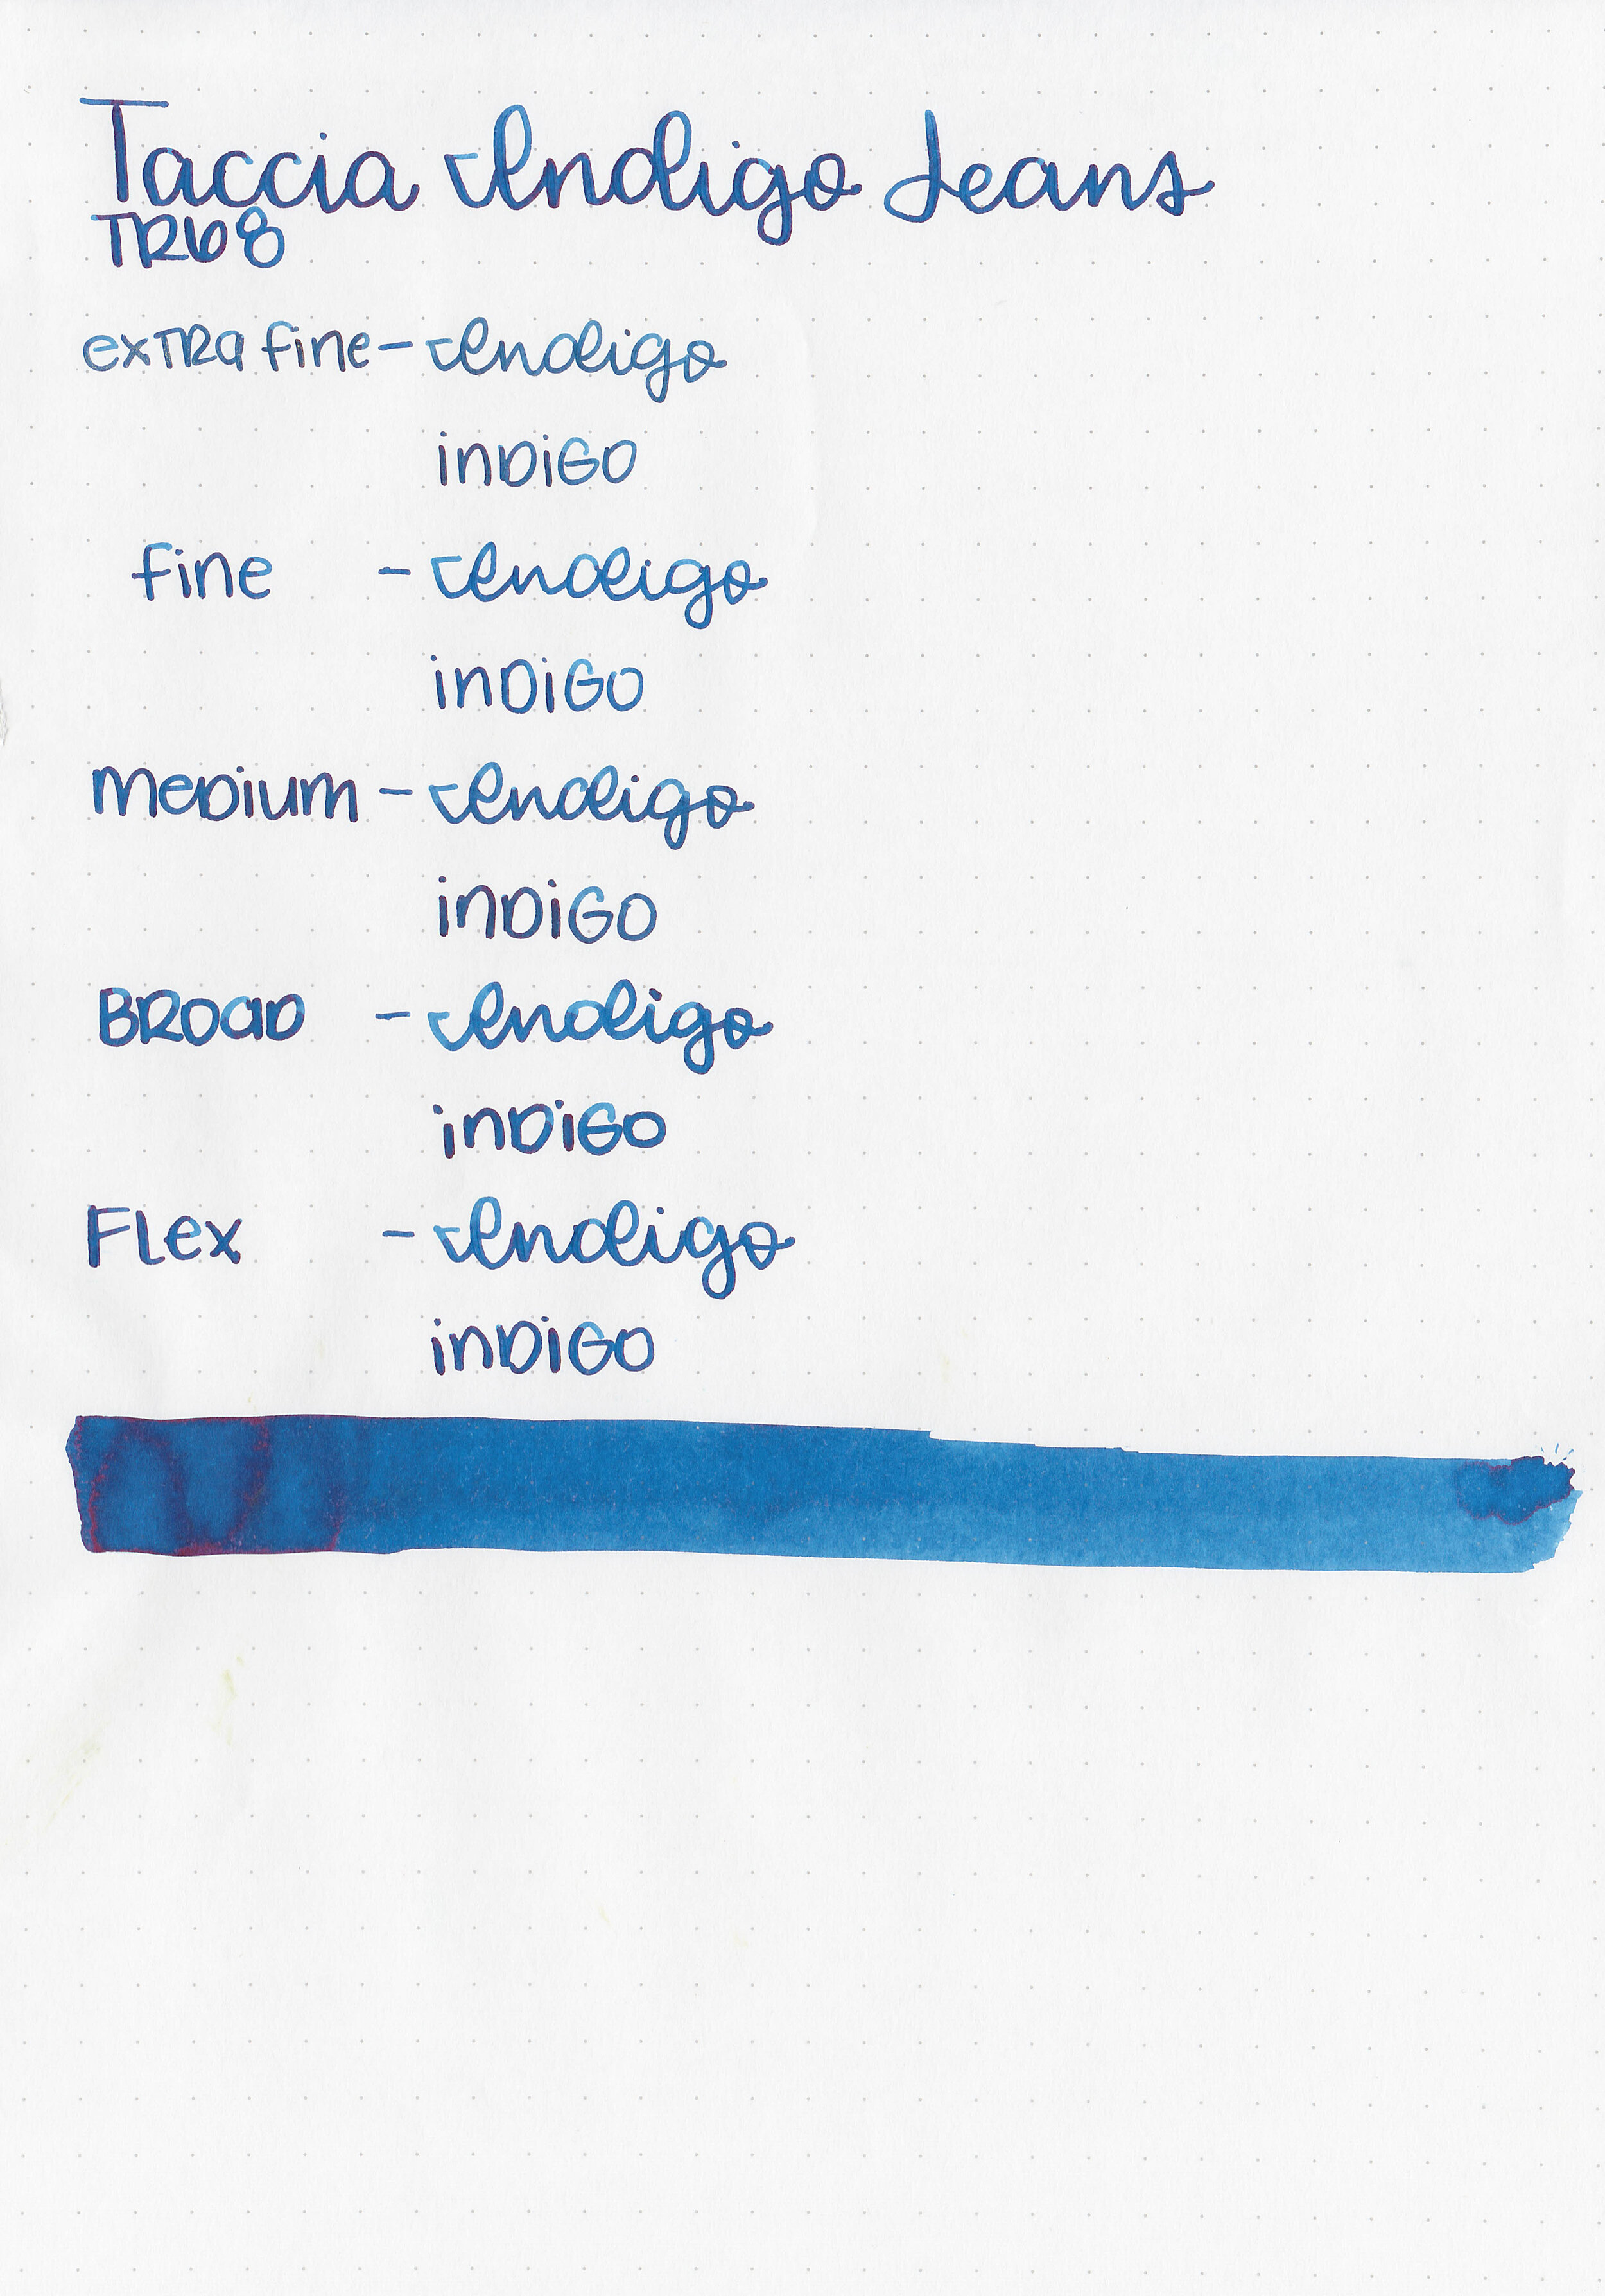 Taccia Indigo Jeans
TR68
extra fine - Indigo
indigo
fine - Indigo
indigo
medium - Indigo
indigo
Broad - Indigo
indigo
Flex - Indigo
indigo